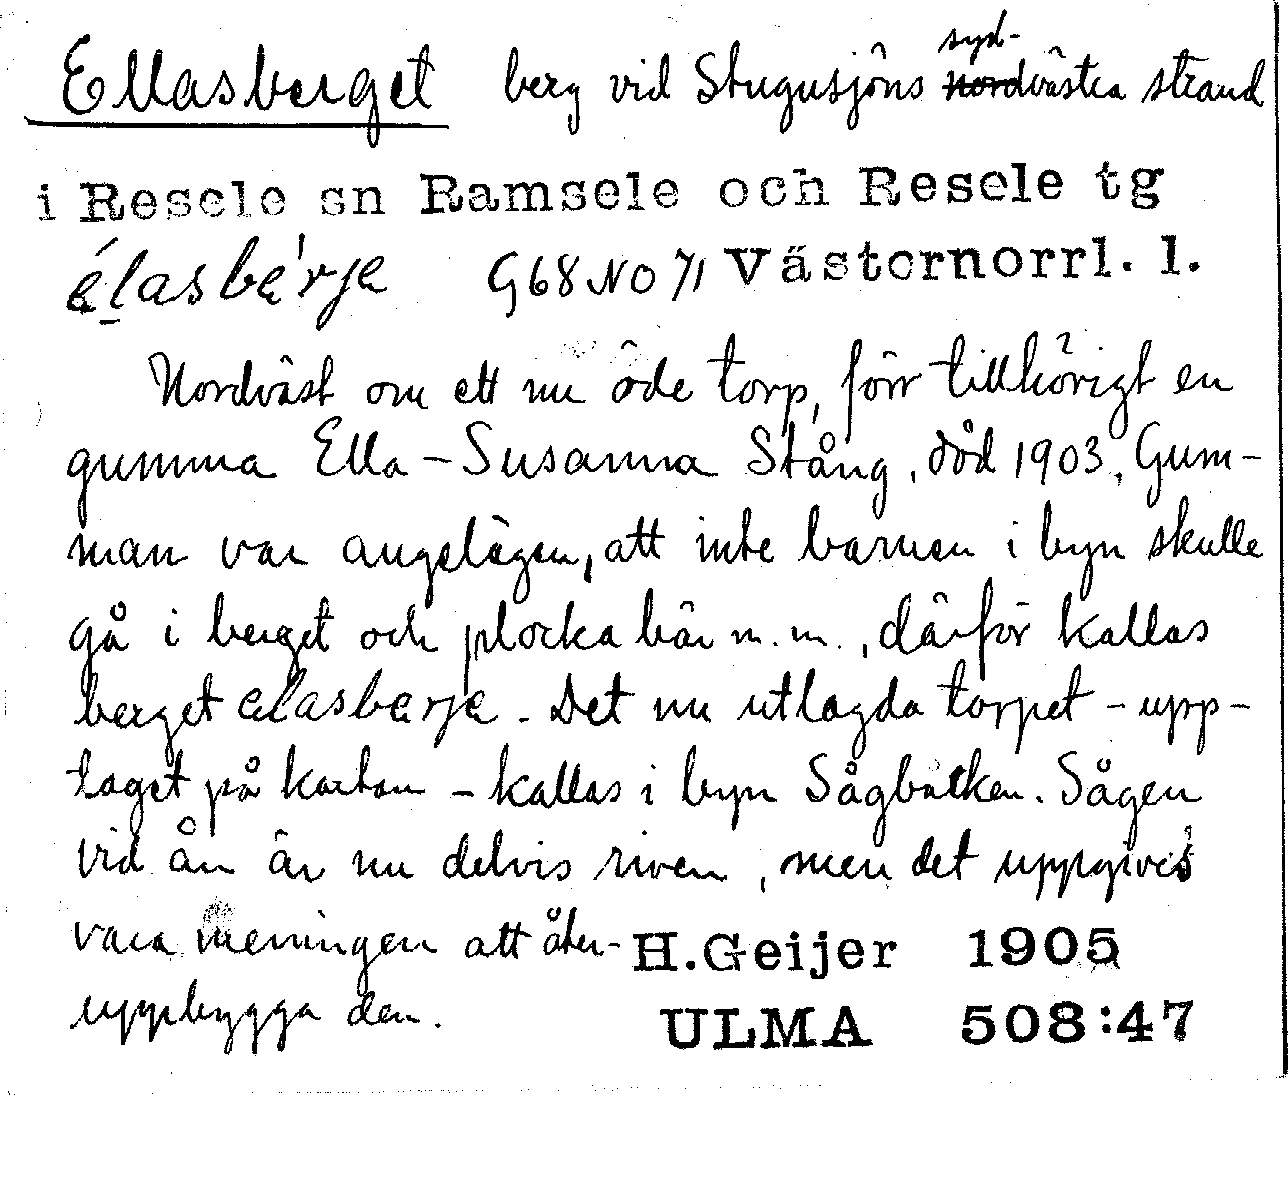 Ellasberget berg vid Stugusjöns syd- ~~nord~~västra strand
i Resele sn Ramsele och Resele tg
élasbe̍rje G68 NO 71 Västernorrl. l.
Nordväst om ett nu öde torp, förr tillhörigt en
gumma Ella-Susanna Stång, död 1903. Gum-
man var angelägen, att inte barnen i byn skulle
gå i berget och plocka bär m.m., därför kallas
berget elasberje. Det nu utlagda torpet - upp-
taget på kartan - kallas i byn Sågbacken. Sågen
vid ån är nu delvis riven, men det uppgives
vara meningen att åter- H.Geijer 1905
uppbygga den. ULMA 508:47